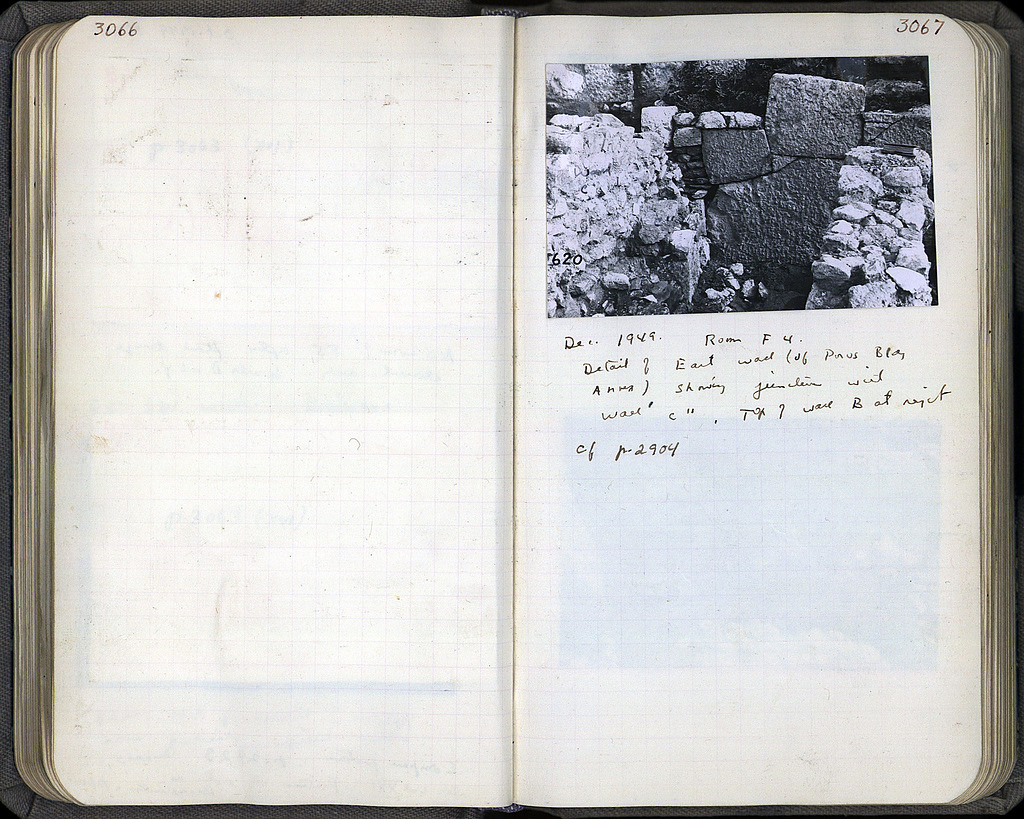 3066
3067
620
Dec. 1949. Room F 4.
Detail of East wall (of Poros Bldg
Annex) showing junction with
wall "C". Top of wall B at right
cf p. 2904